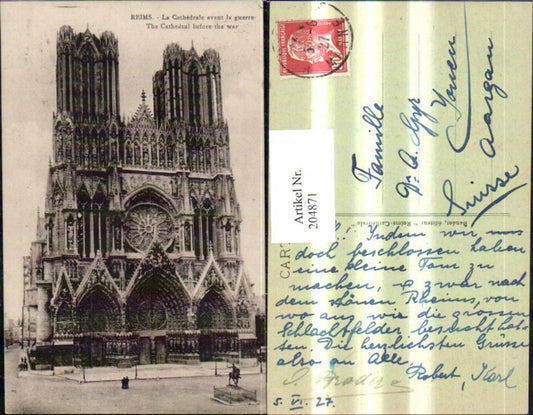 REIMS. - La Cathédrale avant la guerre
The Cathedral before the war
Artikel Nr.
204871
Famille
A. Gyr
Suisse
Aargau
CART
! Indem wir uns
doch beschlossen haben
eine kleine Tour zu
machen, & zwar nach
dem schönen Rheims, von
wo aus wir die grossen
Schlachtfelder besucht hat-
ten. Die herzlichsten Grüsse
also an Alle,
Robert, Karl
5. VI. 27.